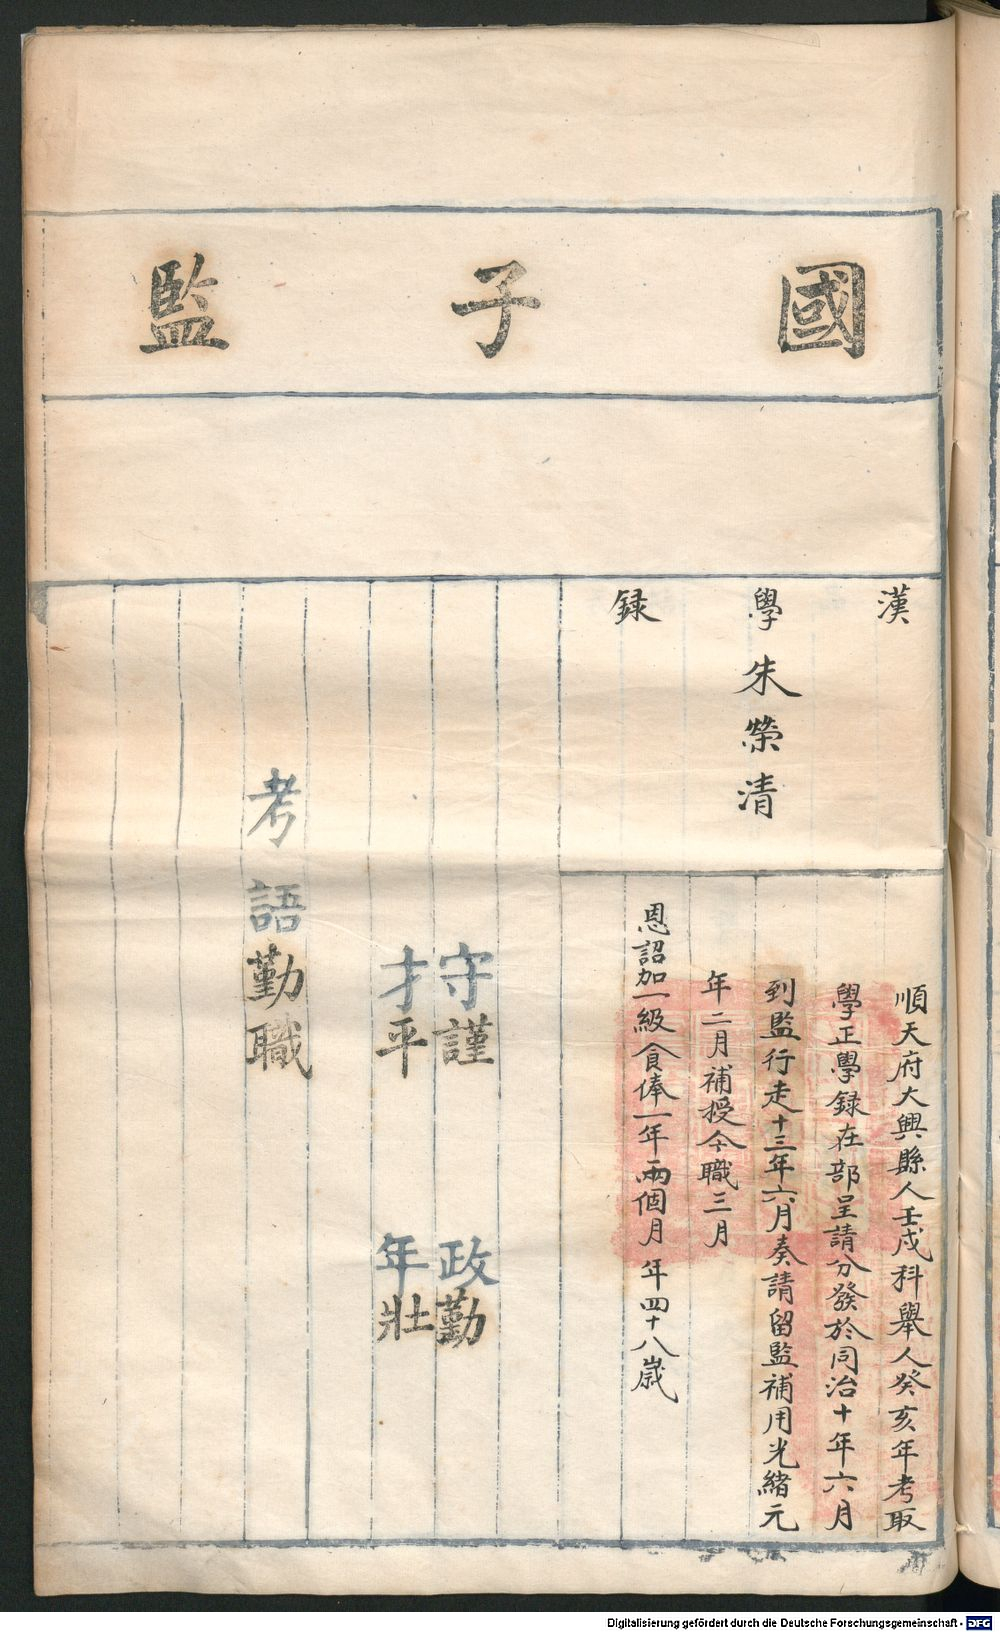 國子監
漢學錄
朱榮清
順天府大興縣人壬戌科舉人癸亥年考取
學正學錄在部呈請分發於同治十年六月
到監行走十三年六月奏請留監補用光緒元
年二月補授今職三月
恩詔加一級食俸一年兩個月 年四十八歲
守謹 政勤
才平 年壯
考語勤職
Digitalisierung gefördert durch die Deutsche Forschungsgemeinschaft - DFG